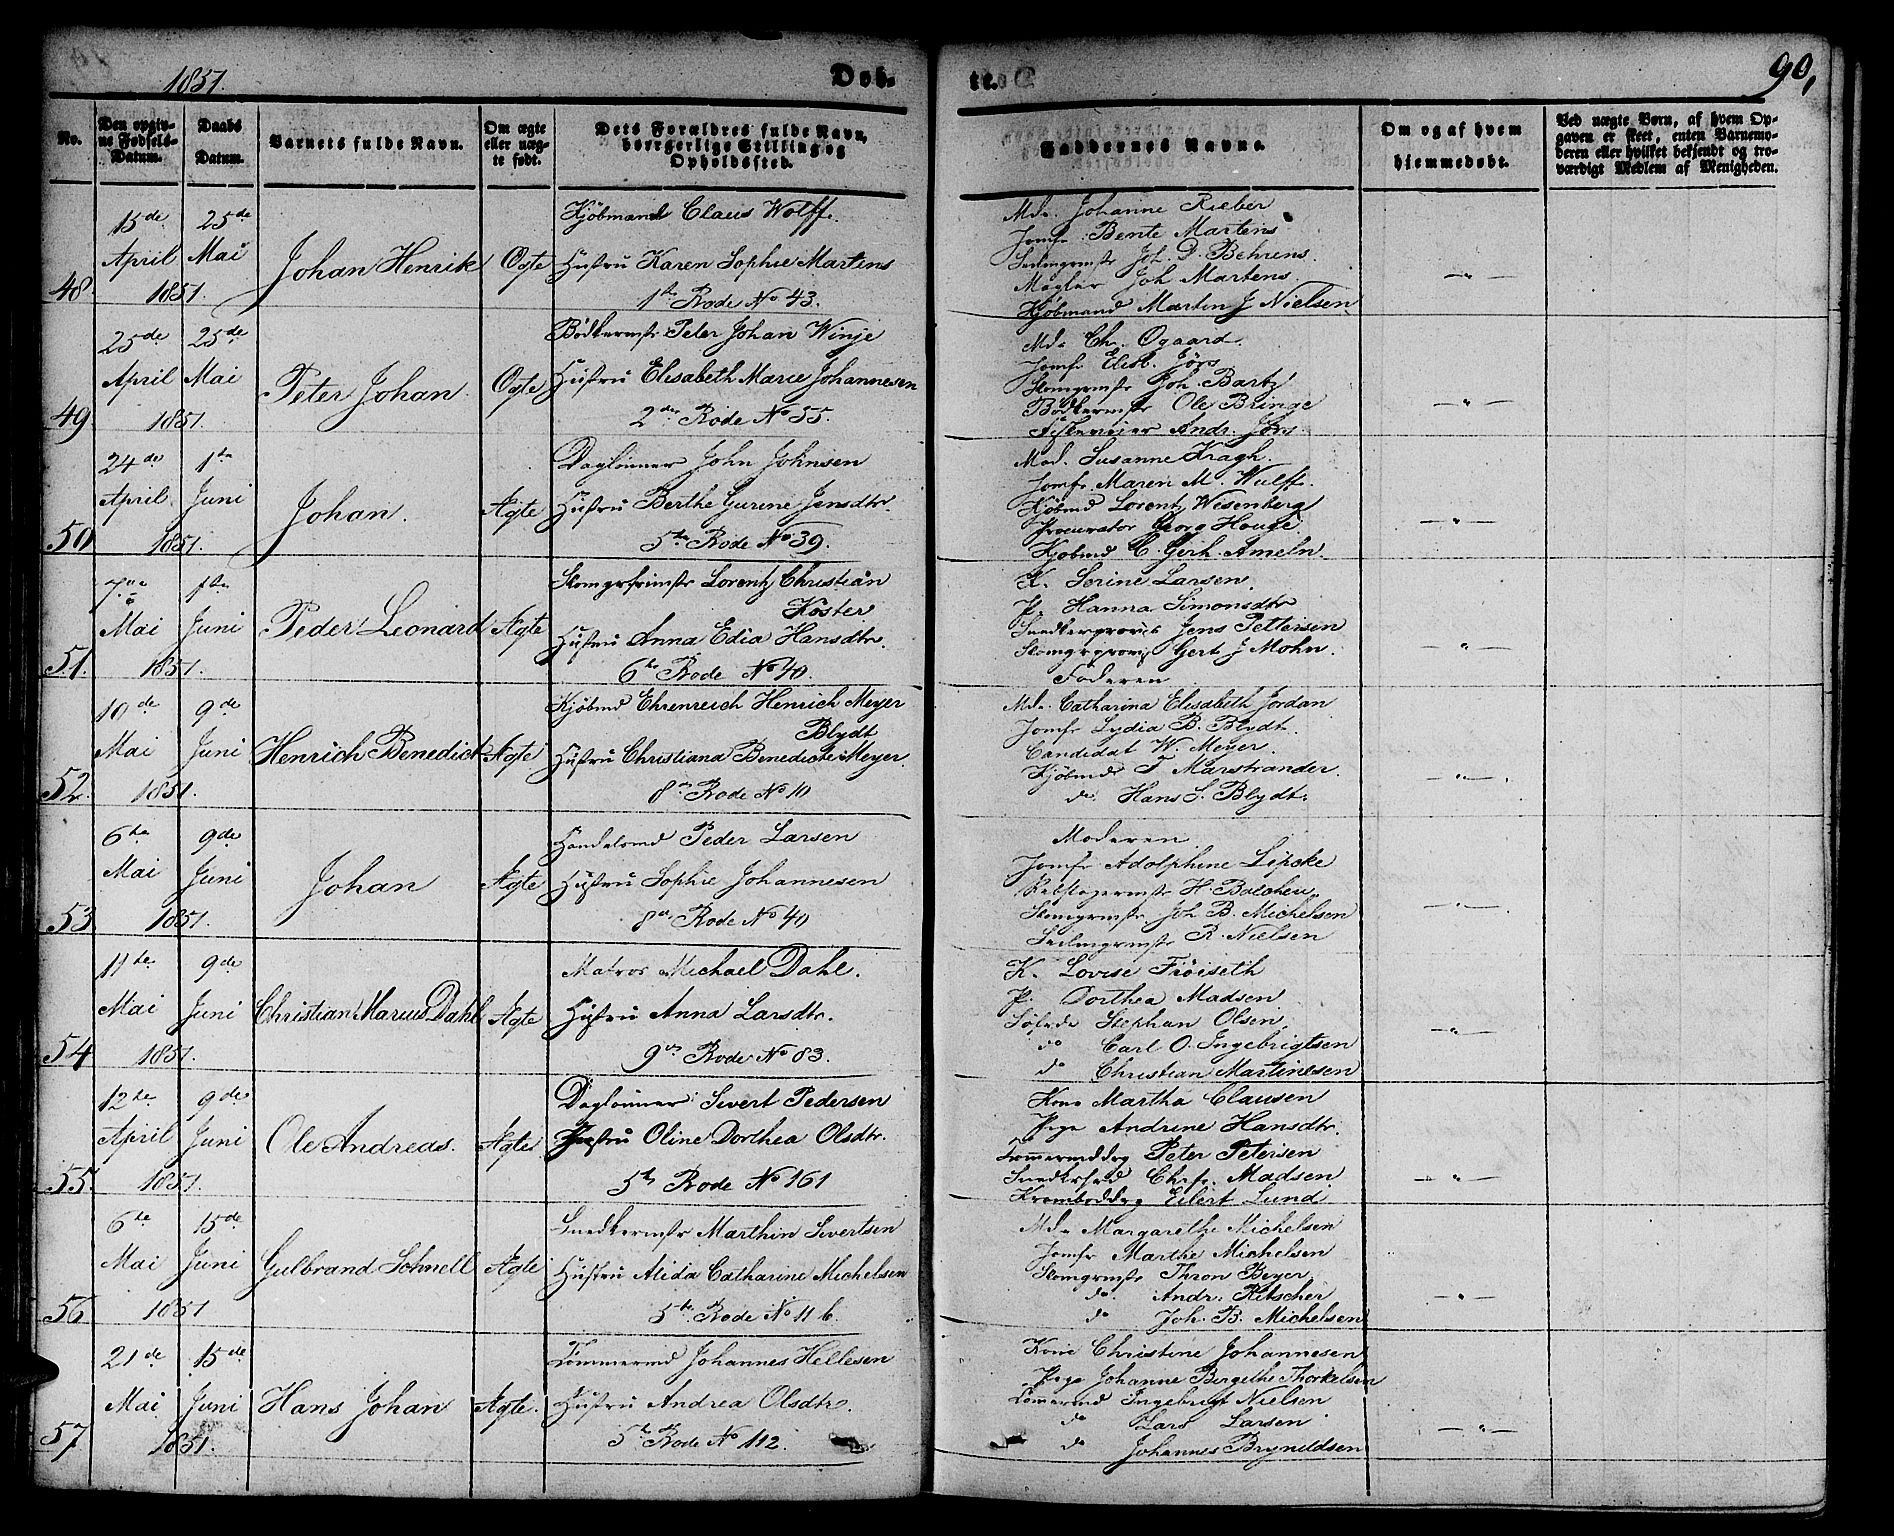 1851.
Døb-
te.
90,
No.
Den opgiv-
ne Fødsels-
Datum.
Daabs
Datum.
Barnets fulde Navn.
Om ægte
eller uæg-
te født.
Dets Forældres fulde Navn,
borgerlige Stilling og
Opholdssted.
Faddernes Navne.
Om og af hvem
hjemmedøbt.
Ved uægte Børn, af hvem Op-
gaven er skeet, enten Barnemo-
deren eller hvilket bekjendt og tro-
værdigt Medlem af Menigheden.
48 15de April 1851. 25de Mai Johan Henrik Ogte
Kjöbmand Claus Wolff.
Hustru Karen Sophie Martens
1te Rode No 43.
Mde. Johanne Rieber
Jomfr. Bente Martens
Seilmgrmstr Joh. D. Behrens.
Mægler Joh Martens
Kjöbmand Martin J Nielsen
49 25de April 1851. 25de Mai Peter Johan Ogte
Bödkermstr. Peter Johan Winje
Hustru Elisabeth Marie Johannesen
2den Rode No 55.
Mde Ch. Ogaard.
Jomfr Elisb. Jörs
Skomgrmstr Joh. Bartz
Bödkermstr Ole Bringe
Andr. Jörs
50 24de April 1851. 1te Juni Johan. Ægte
Daglönner John Johnsen
Hustru Berthe Gurine Jensdtr.
5te Rode No 39.
Mad. Susanne Kragh.
Jomfr. Maren M. Wulff.
Kjöbmd Lorentz Wesenberg
Procurator Georg Houge
Kjöbmd C. Gerh. Ameln.
51. 7de Mai 1851. 1te Juni Peder Leonard Ægte
Lorentz Christian
Köster
Hustru Anna Edia Hansdtr.
6te Rode No 40.
K. Serine Larsen
P. Hanna Simonsdtr
Jens Pettersen
Gert J Mohn.
Faderen
52. 10de Mai 1851. 9de Juni Henrich Benedict Ægte
Kjöbmd Ehrenreich Henrich Meyer
Blydt
Hustru Christiana Benedicte Meyer.
8de Rode No 10
Mde. Catharina Elisabeth Jordan
Jomfr Lydia B. Blydt.
Candidat W. Meyer.
Kjöbmd T Marstrander.
do. Hans S. Blydt.
53 6te Mai 1851. 9de Juni Johan Ægte
Handelsmd Peder Larsen
Hustru Sophie Johannesen
8de Rode No 40
Moderen
Jomfr Adolphine Lipcke
Rebslagermstr H. Balchen
Skomgrmstr Joh B. Michelsen
Seilmgrmstr R. Nielsen
54 11te Mai 1851. 9de Juni Christian Marius Dahl Ægte
Matros Michael Dahl.
Hustru Anna Larsdtr.
9de Rode No 83.
K. Lovise Fröiseth
P. Dorthea Madsen
Söfrde Stephan Olsen
do Carl O. Ingebrigtsen
do Christian Martinesen
55. 12te April 1851. 9de Juni Ole Andreas. Ægte
Daglönner Sivert Pedersen
Hustru Oline Dorthea Olsdtr.
5te Rode No 161
Kone Martha Clausen
Pige Andrine Hansdtr.
Peter Petersen
Madsen
Eilert Lund
56 6te Mai 1851 15de Juni Gulbrand Schnell Ægte
Snedkermstr Marthin Sivertsen
Hustru Alida Catharine Michelsen
5te Rode No 11 b.
Mde Margarethe Michelsen
Jomfr Marthe Michelsen
Skomgrmstr Thron Beyer
do. Andr. Ritscher
do Joh. B. Michelsen
57 21de Mai 1851. 15de Juni Hans Johan Ægte.
Tömmermd Johannes Hellesen
Hustru Andrea Olsdtr.
5te Rode No 112.
Kone Christine Johannesen
Pige Johanne Bergithe Thorkelsen
Tömermd Ingebrigt Nielsen
do Lars Larsen
do Johannes Bryndldsen